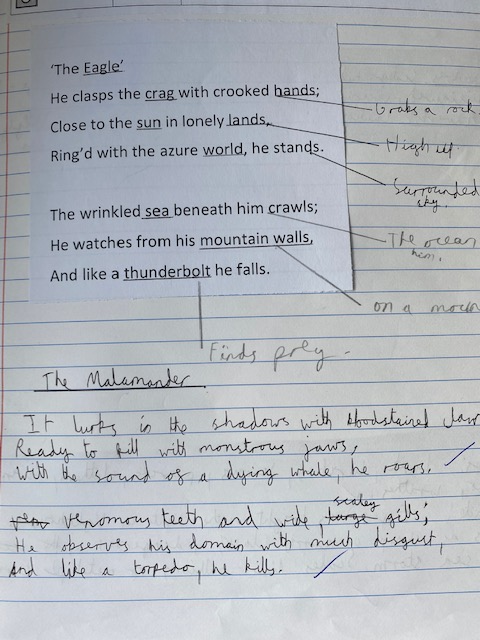 'The Eagle'
He clasps the crag with crooked hands;
Close to the sun in lonely lands,
Ring'd with the azure world, he stands.
The wrinkled sea beneath him crawls;
He watches from his mountain walls,
And like a thunderbolt he falls.
Grabs a rock.
High up
Surrounded
sky
The ocean
him.
on a moun
Finds prey.
The Malamander
It lurks in the shadows with bloodstained claw
Ready to kill with monstrous jaws,
With the sound of a dying whale, he roars.
ven venomous teeth and wide, large scaley gills;
He observes his domain with much disgust,
And like a torpedo, he kills.